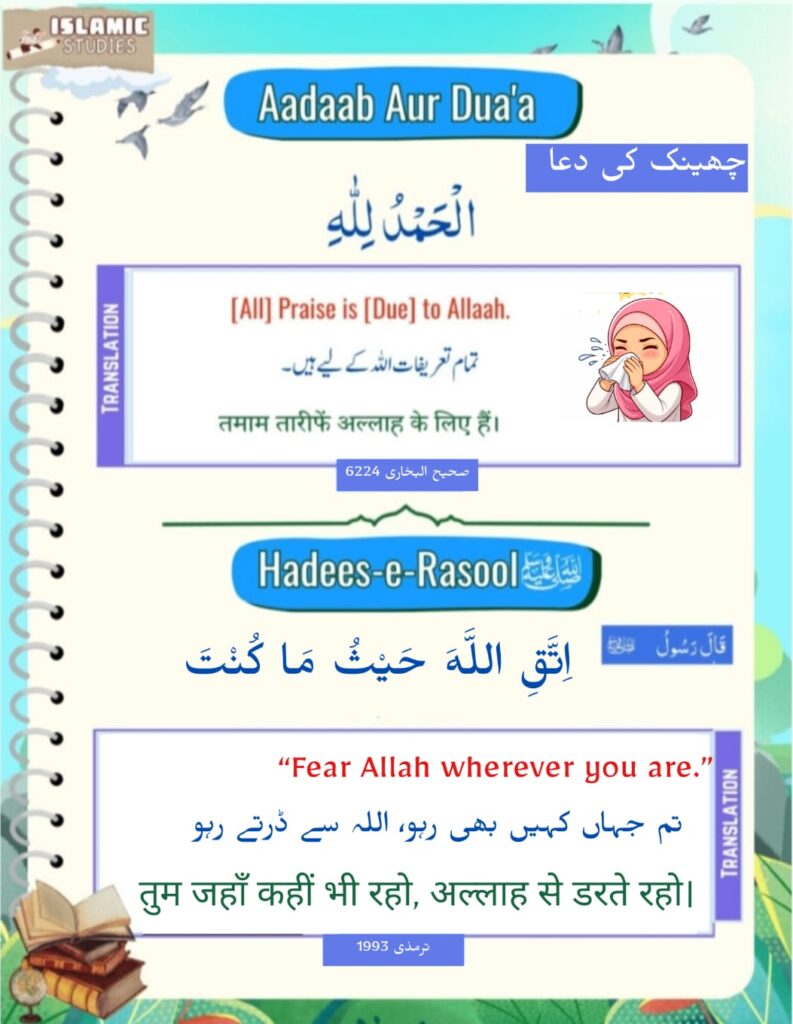 ISLAMIC
STUDIES
Aadaab Aur Dua'a
چھینک کی دعا
الْحَمْدُ لِلّٰهِ
TRANSLATION
[All] Praise is [Due] to Allaah.
تمام تعریفات اللہ کے لیے ہیں۔
तमाम तारीफें अल्लाह के लिए हैं।
صحیح البخاری 6224
Hadees-e-Rasool ﷺ
قَالَ رَسُولُ ﷺ
اِتَّقِ اللَّهَ حَيْثُ مَا كُنْتَ
TRANSLATION
“Fear Allah wherever you are.”
تم جہاں کہیں بھی رہو، اللہ سے ڈرتے رہو
तुम जहाँ कहीं भी रहो, अल्लाह से डरते रहो।
ترمذی 1993